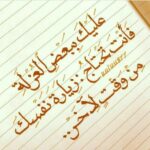 عليك ببعض العزلة
فأنت تحتاج زيارة نفسك
من وقتٍ لآخر